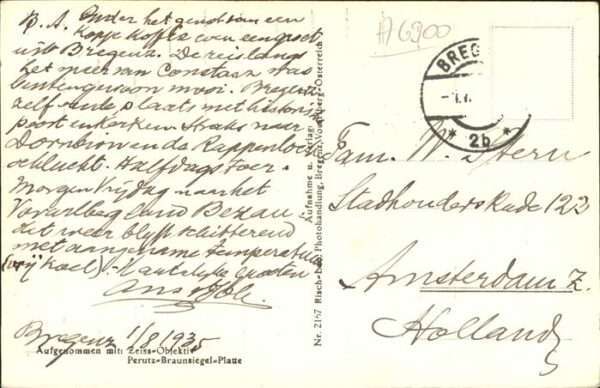 B. A. Onder het genot van een
kopje koffie even een groet
uit Bregenz. De reis langs
het meer van Constanz was
buitengewoon mooi. Bregenz
zelf oude plaats met histor.
poort en kerken. Straks naar
Dornbirn en de Rappenloch
schlucht. Halfdagstoer.
Morgen Vrijdag naar het
Vorarlberg land Bezau
dit weer blijft schitterend
met aangename temperatuur
(vrij koel) Hartelijke groeten
Bregenz 1/8 1935
Aufgenommen mit: Zeiss-Objektiv
Perutz-Braunsiegel-Platte
Nr. 2167 Risch-Lau, Photohandlung, Bregenz, Vorarlberg-Österreich
Aufnahme u. Verlag
A6900
BREG
2b
Fam. W. Stern
Stadhouderskade 123
Amsterdam Z.
Holland